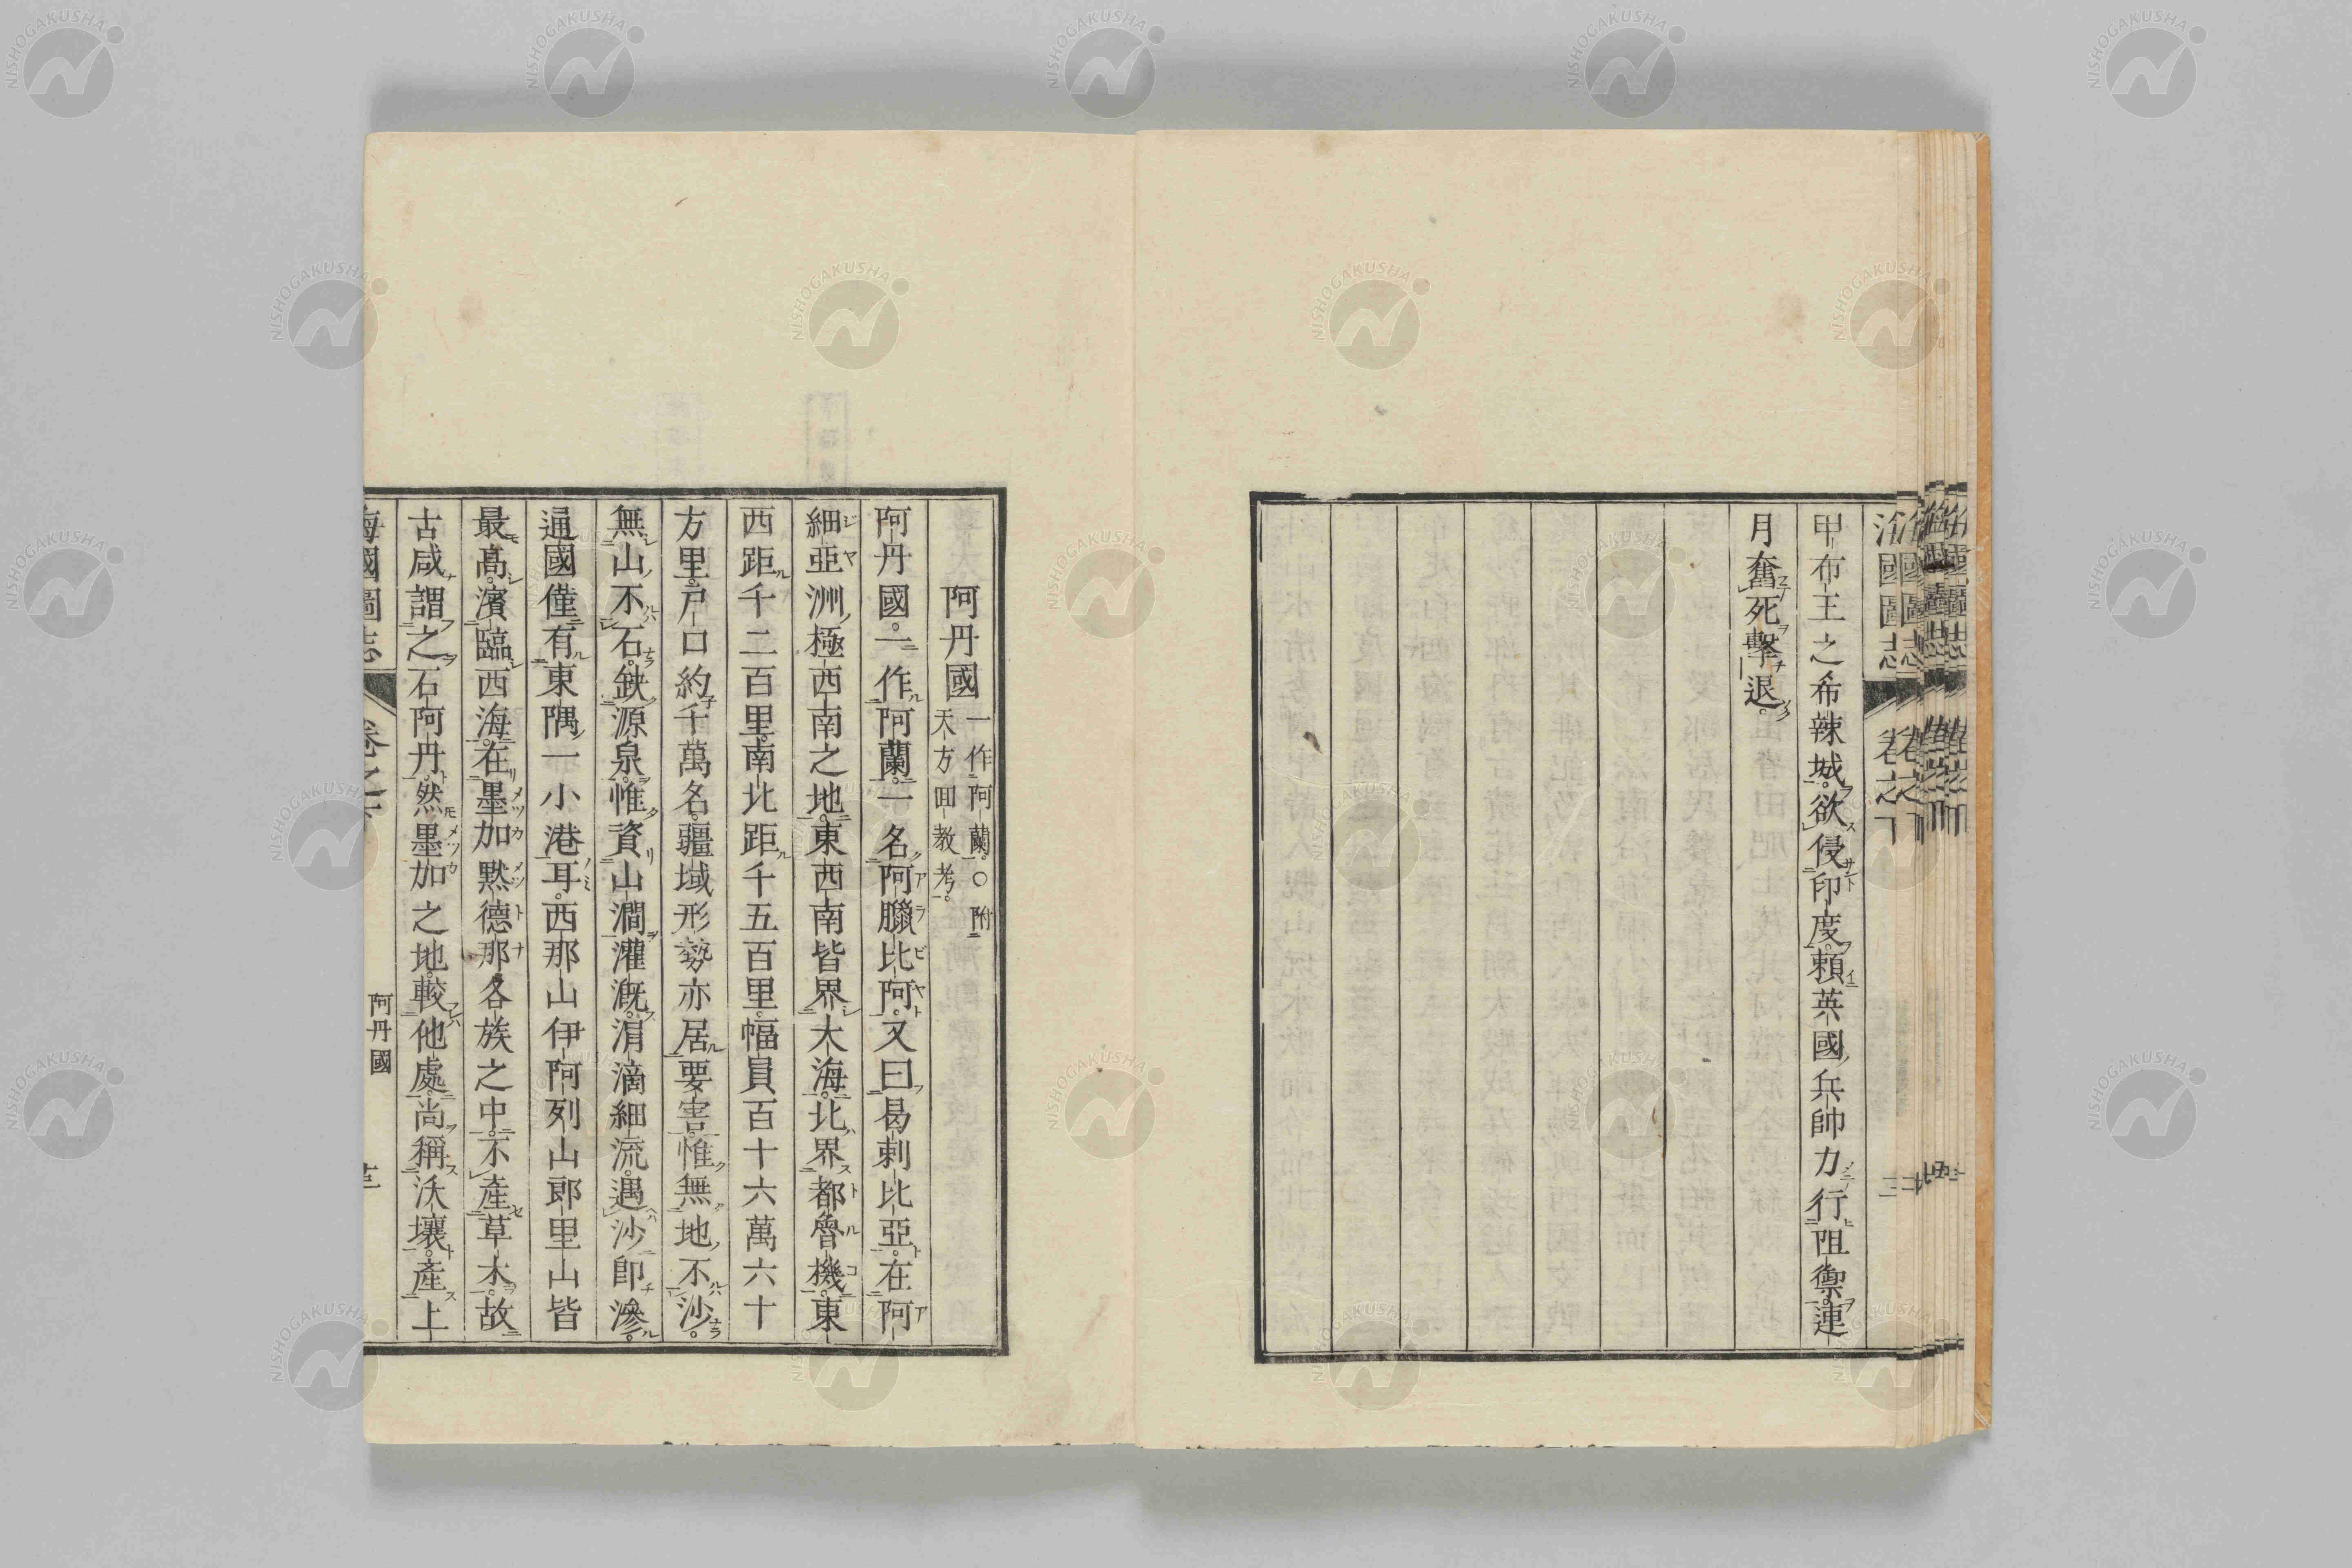 甲布王之希辣城。欲侵印度。賴英國兵帥力行阻禦。連
月奮死擊退。
阿丹國 一作阿蘭。○附
天方回教考。
阿丹國。一作阿蘭。一名阿臘比阿。又曰曷剌比亞。在阿
細亞洲極西南之地。東西南皆界大海。北界都魯機。東
西距千二百里。南北距千五百里。幅員百十六萬六十
方里。戶口約千萬名。疆域形勢亦居要害。惟無地不沙。
無山不石。缺源泉。惟資山澗灌漑。涓滴細流。遇沙卽滲。
通國僅有東隅一小港耳。西那山伊阿列山郎里山皆
最高。濱臨西海。在墨加默德那各族之中。不產草木。故
古咸謂之石阿丹。然墨加之地。較他處。尚稱沃壤。產上
海國圖志 卷之 阿丹國
NISHOGAKUSHA